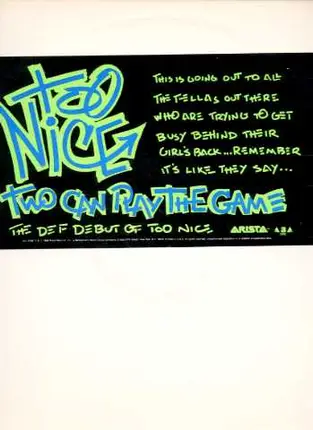 TOO
NICE
THIS IS GOING OUT TO ALL
THE FELLAS OUT THERE
WHO ARE TRYING TO GET
BUSY BEHIND THEIR
GIRL'S BACK...REMEMBER
IT'S LIKE THEY SAY...
TWO CAN PLAY THE GAME
THE DEF DEBUT OF TOO NICE
ARISTA